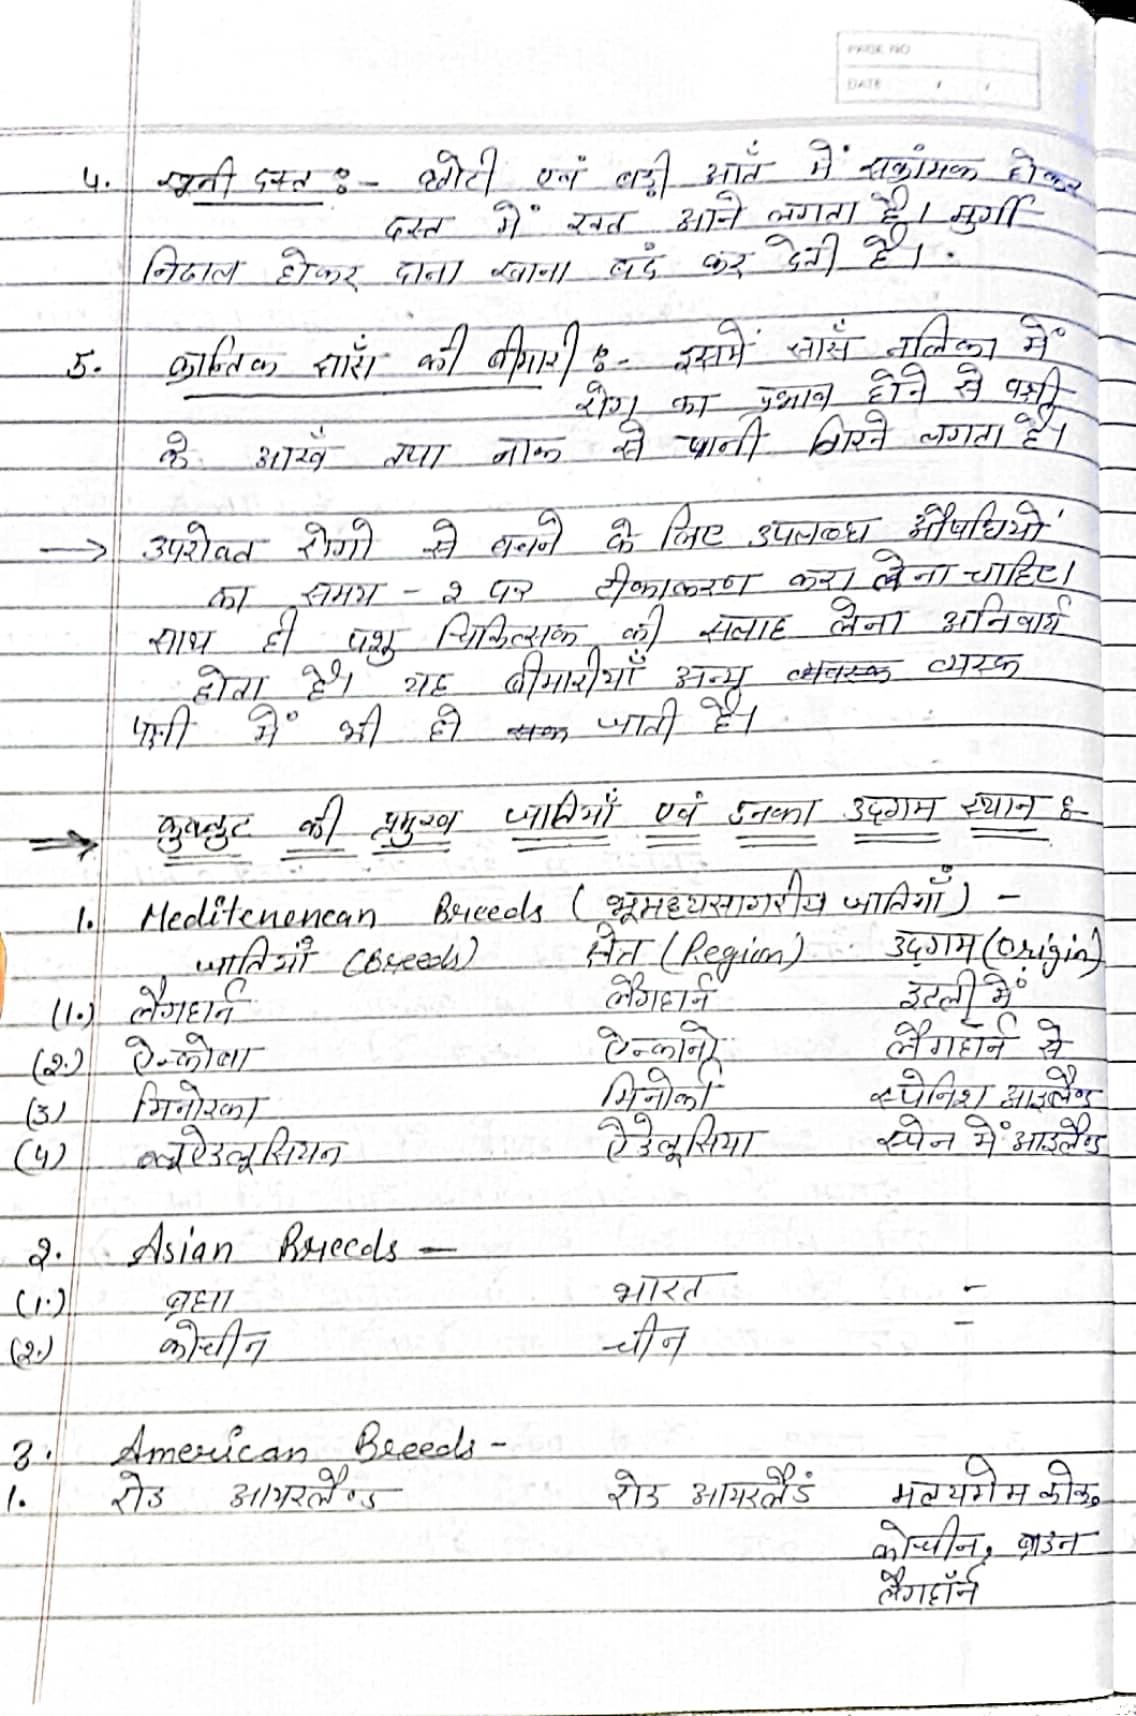 PAGE NO
DATE / /
4. खूनी दस्त :- छोटी एवं बड़ी आतँ में सक्रांमक होकर
दस्त में रक्त आने लगता है। मुर्गी
निढाल होकर दाना खाना बदं कर देती है।
5. क्रानिक साँस की बीमारी :- इसमें सासँ नलिका में
रोग का प्रभाव होने से पक्षी
के आखँ तथा नाक से पानी गिरने लगता है।
→ उपरोक्त रोगो से बचने के लिए उपलब्ध औषधियों
का समय - 2 पर टीकाकरण करा लेना चाहिए।
साथ ही पशु चिकित्सक की सलाह लेना अनिवार्य
होता है। यह बीमारीयाँ अन्य व्यस्क
पक्षी में भी हो जाती है।
⇒ कुक्कुट की प्रमुख जातियाँ एवं उनका उद्गम स्थान :-
1. Mediterenean Breeds (भूमध्यसागरीय जातियाँ) -
जातियाँ (Breeds) क्षेत्र (Region) उद्गम (Origin)
(1.) लैगहार्न लैगहार्न इटली में
(2.) ऐन्कोना ऐन्कानो लैगहार्न से
(3) मिनोरका मिनोर्का स्पेनिश आइलैण्ड
(4) ब्लूऐडलूसियन ऐडेलूसिया स्पेन में आइलैण्ड
2. Asian Breeds —
(1.) ब्रह्मा भारत -
(2.) कोचीन चीन -
3. American Breeds -
1. रोड आयरलैण्ड रोड आयरलैडं मलयगेम कोक,
कोचीन, ब्राउन
लैगहॉर्न